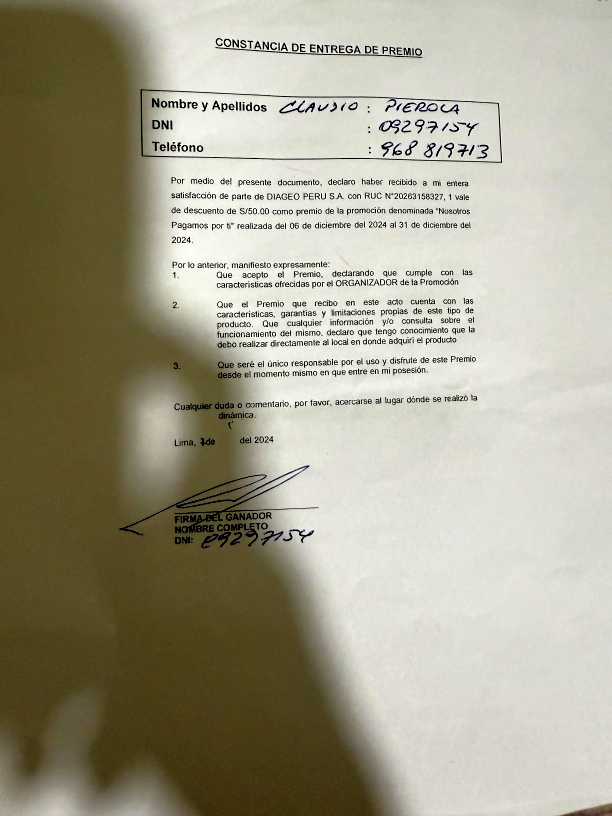 CONSTANCIA DE ENTREGA DE PREMIO
Nombre y Apellidos CLAUDIO : PIEROLA
DNI : 09297154
Teléfono : 968 819713
Por medio del presente documento, declaro haber recibido a mi entera
satisfacción de parte de DIAGEO PERU S.A. con RUC N°20263158327, 1 vale
de descuento de S/50.00 como premio de la promoción denominada "Nosotros
Pagamos por ti" realizada del 06 de diciembre del 2024 al 31 de diciembre del
2024.
Por lo anterior, manifiesto expresamente:
1. Que acepto el Premio, declarando que cumple con las
características ofrecidas por el ORGANIZADOR de la Promoción
2. Que el Premio que recibo en este acto cuenta con las
características, garantías y limitaciones propias de este tipo de
producto. Que cualquier información y/o consulta sobre el
funcionamiento del mismo, declaro que tengo conocimiento que la
debo realizar directamente al local en donde adquirí el producto
3. Que seré el único responsable por el uso y disfrute de este Premio
desde el momento mismo en que entre en mi posesión.
Cualquier duda o comentario, por favor, acercarse al lugar dónde se realizó la
dinámica.
Lima, de del 2024
FIRMA DEL GANADOR
NOMBRE COMPLETO
DNI: 09297154